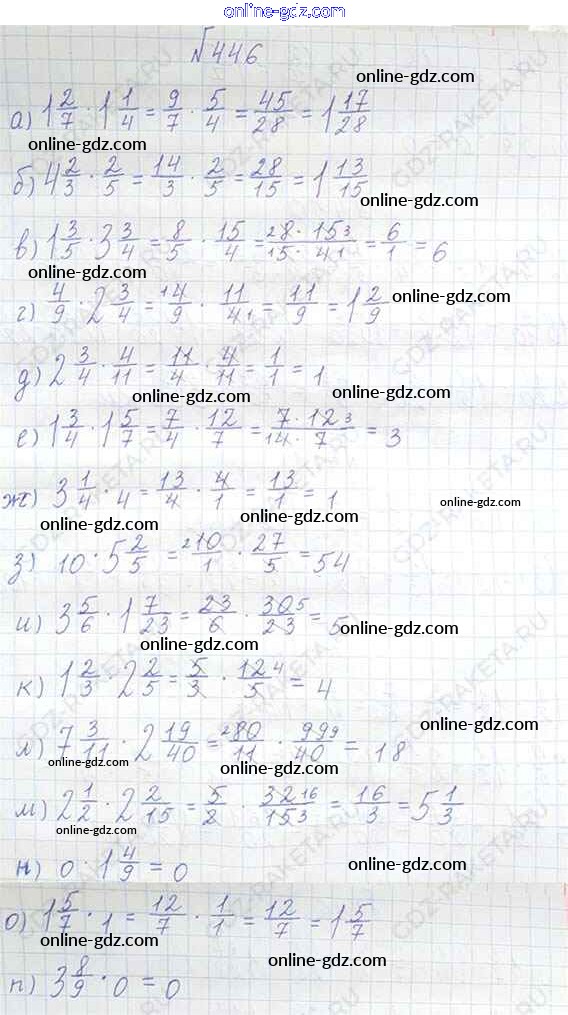 online-gdz.com
№446
online-gdz.com
а) 1 2/7 · 1 1/4 = 9/7 · 5/4 = 45/28 = 1 17/28
online-gdz.com
б) 4 2/3 · 2/5 = 14/3 · 2/5 = 28/15 = 1 13/15
online-gdz.com
в) 1 3/5 · 3 3/4 = 8/5 · 15/4 = 28 · 153/15 · 41 = 6/1 = 6
online-gdz.com
г) 4/9 · 2 3/4 = 14/9 · 11/41 = 11/9 = 1 2/9
online-gdz.com
д) 2 3/4 · 4/11 = 11/4 · 4/11 = 1/1 = 1
online-gdz.com
online-gdz.com
е) 1 3/4 · 1 5/7 = 7/4 · 12/7 = 7 · 12 3/14 · 7 = 3
ж) 3 1/4 · 4 = 13/4 · 4/1 = 13/1 = 1
online-gdz.com
online-gdz.com
online-gdz.com
з) 10 · 5 2/5 = 210/1 · 27/5 = 54
и) 3 5/6 · 1 7/23 = 23/6 · 305/23 = 5
online-gdz.com
online-gdz.com
к) 1 2/3 · 2 2/5 = 5/3 · 12 4/5 = 4
л) 7 3/11 · 2 19/40 = 280/11 · 999/40 = 18
online-gdz.com
online-gdz.com
online-gdz.com
м) 2 1/2 · 2 2/15 = 5/2 · 32 16/153 = 16/3 = 5 1/3
online-gdz.com
н) 0 · 1 4/9 = 0
online-gdz.com
о) 1 5/7 · 1 = 12/7 · 1/1 = 12/7 = 1 5/7
online-gdz.com
online-gdz.com
п) 3 8/9 · 0 = 0
online-gdz.com
GDZ-RAKETA.RU